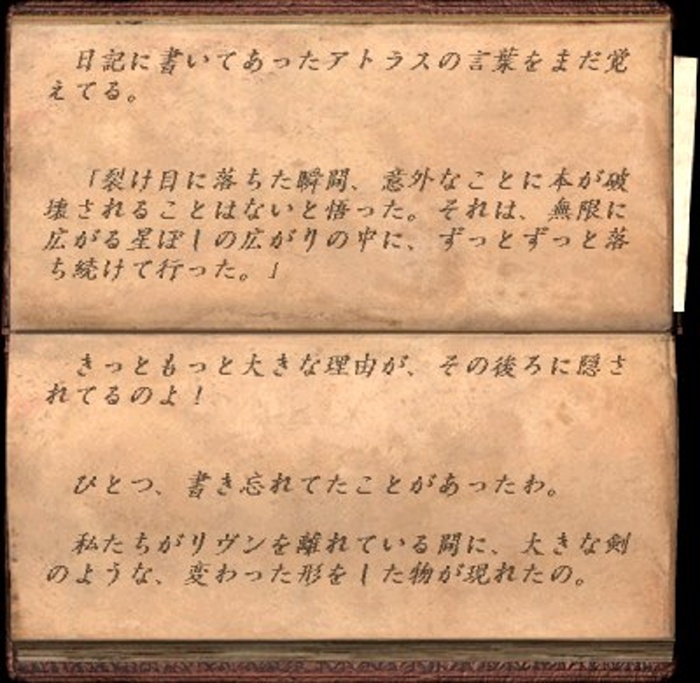 日記に書いてあったアトラスの言葉をまだ覚
えてる。
「裂け目に落ちた瞬間、意外なことに本が破
壊されることはないと悟った。それは、無限に
広がる星ぼしの広がりの中に、ずっとずっと落
ち続けて行った。」
きっともっと大きな理由が、その後ろに隠さ
れてるのよ！
ひとつ、書き忘れてたことがあったわ。
私たちがリヴンを離れている間に、大きな剣
のような、変わった形をした物が現れたの。